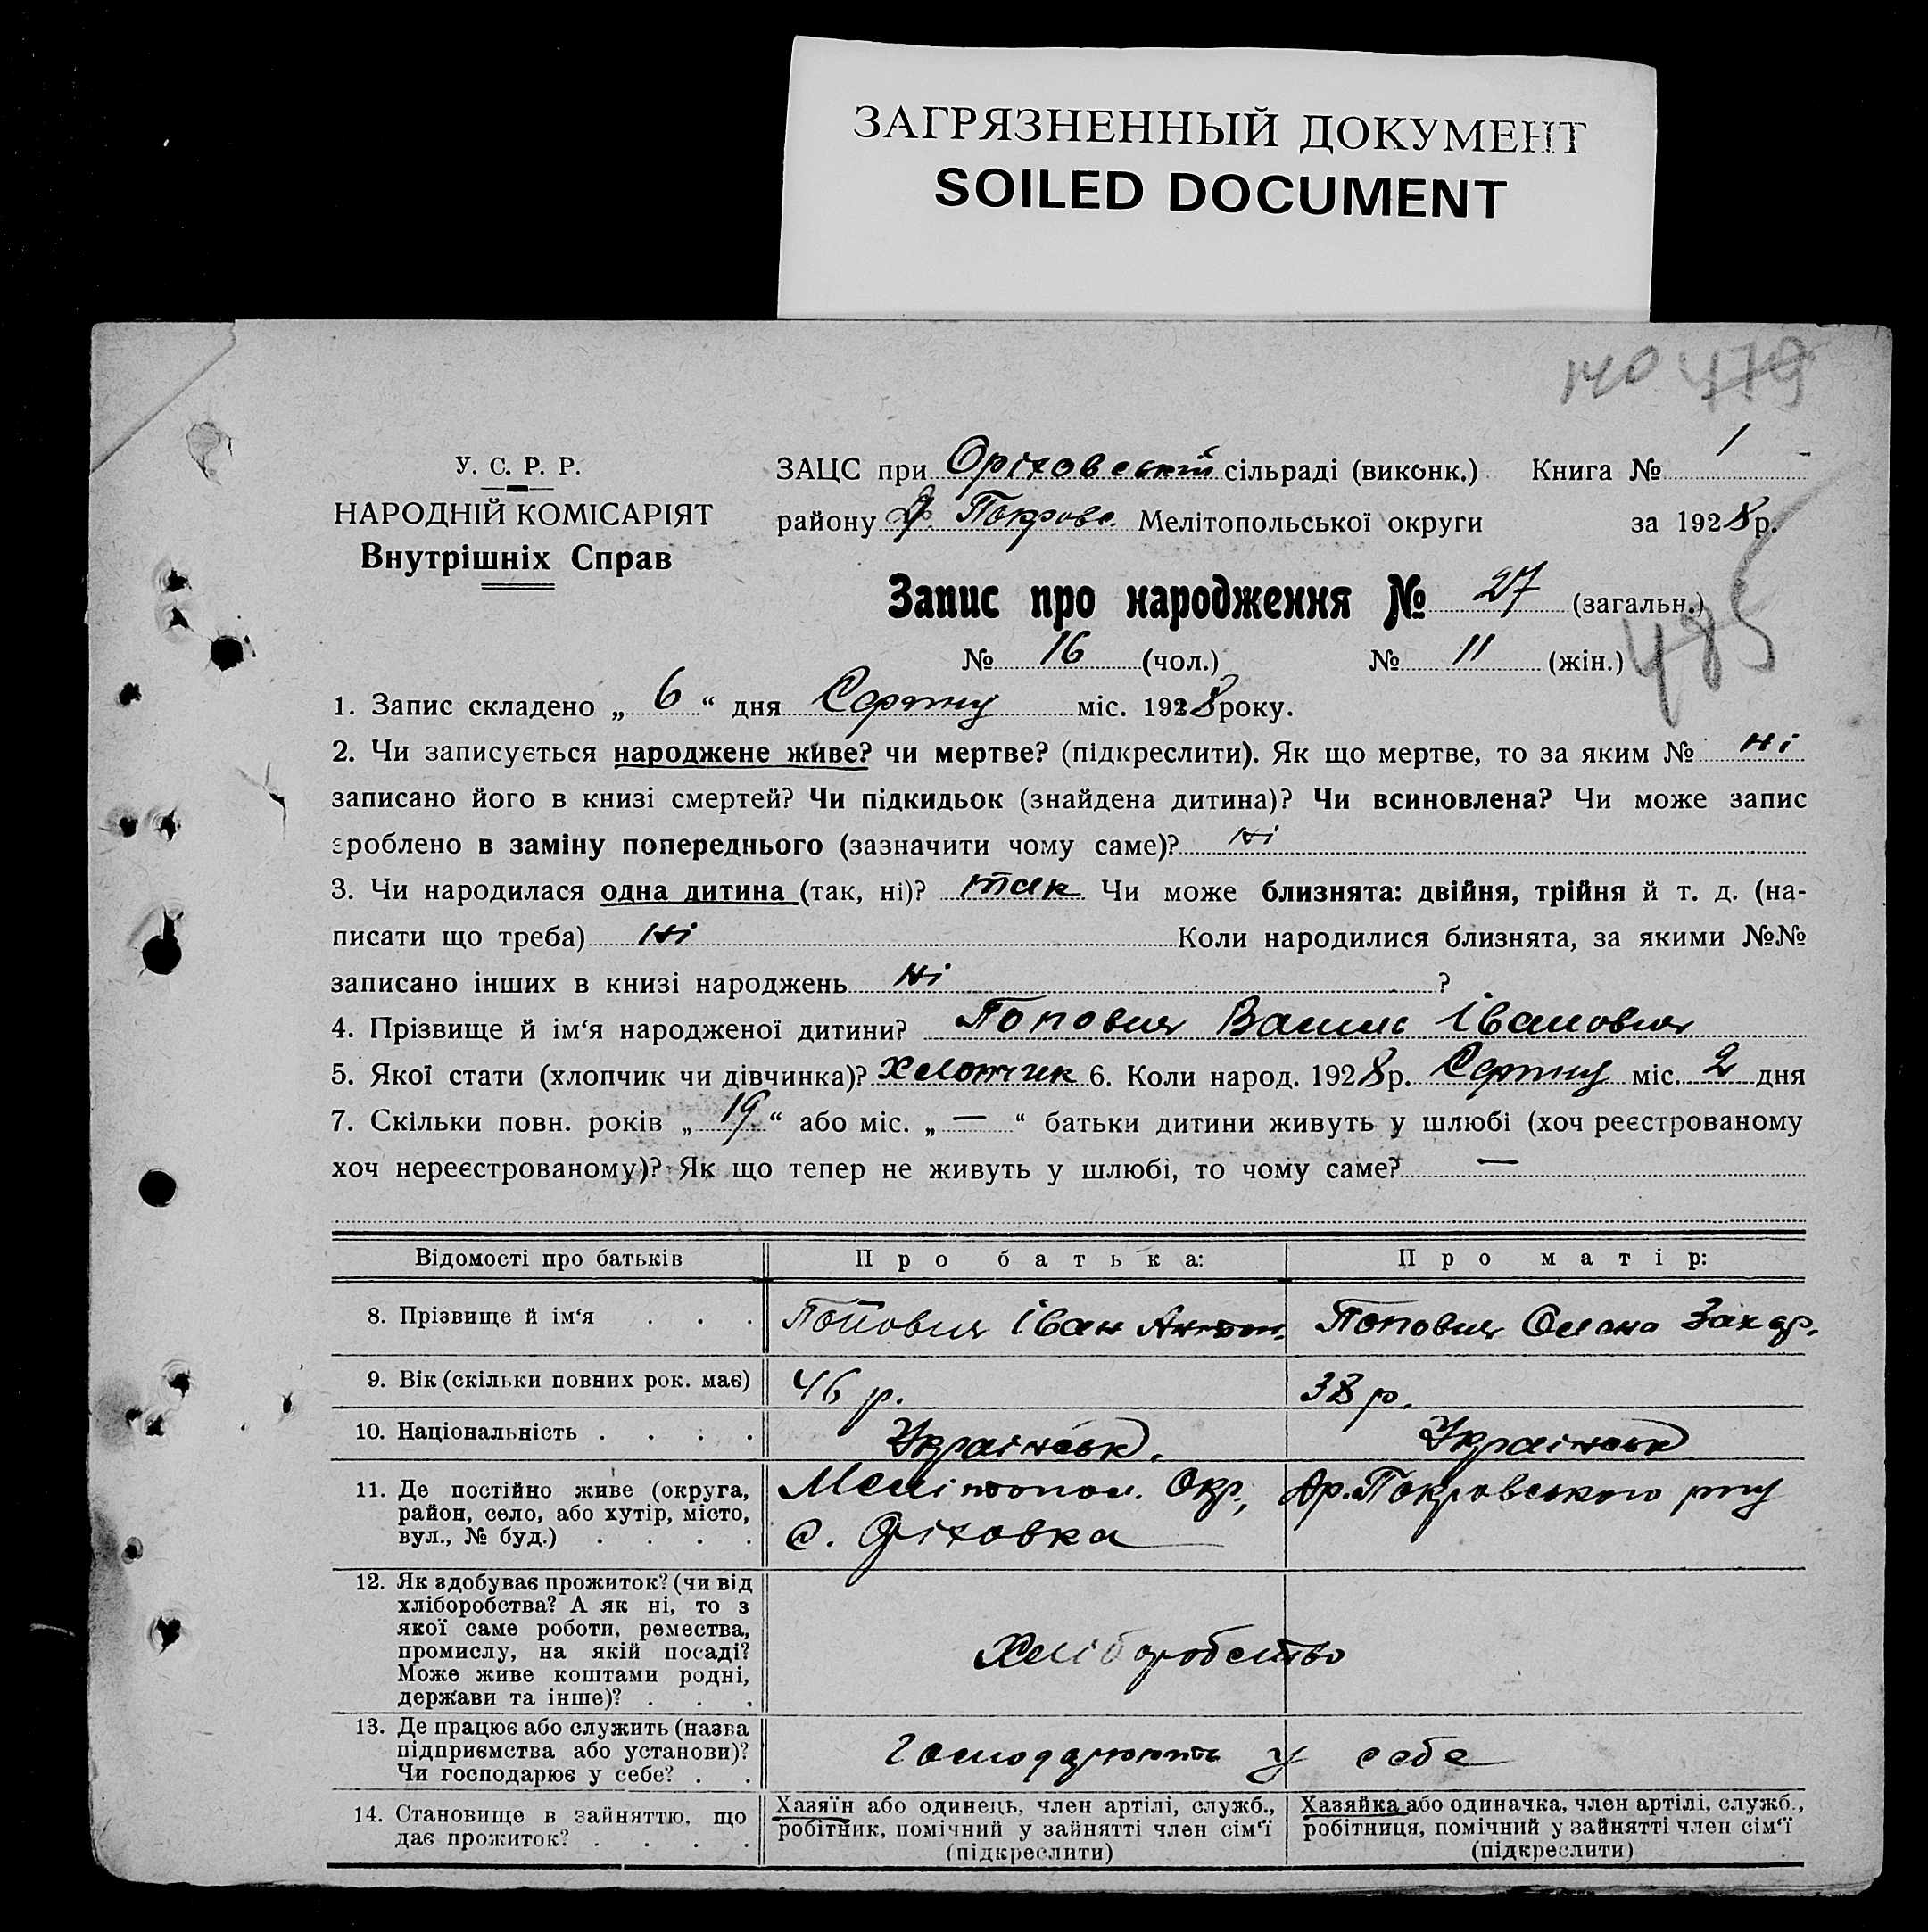 ЗАГРЯЗНЕННЫЙ ДОКУМЕНТ
SOILED DOCUMENT
140 479
У. С. Р. Р.
НАРОДНІЙ КОМІСАРІЯТ
Внутрішніх Справ
ЗАЦС при Оріховській сільраді (виконк.) Книга № 1
району Покров. Мелітопольської округи за 1928 р.
Запис про народження № 27 (загальн.)
485
№ 16 (чол.) № 11 (жін.)
1. Запис складено „ 6 “ дня Серпну міс. 1928 року.
2. Чи записується народжене живе? чи мертве? (підкреслити). Як що мертве, то за яким № ні
записано його в книзі смертей? Чи підкидьок (знайдена дитина)? Чи всиновлена? Чи може запис
зроблено в заміну попереднього (зазначити чому саме)? ні
3. Чи народилася одна дитина (так, ні)? так Чи може близнята: двійня, трійня й т. д. (на-
писати що треба) ні Коли народилися близнята, за якими №№
записано інших в книзі народжень ні ?
4. Прізвище й ім‘я народженої дитини? Попович Іванович
5. Якої стати (хлопчик чи дівчинка)? хлопчик 6. Коли народ. 1928 р. Серпну міс. 2 дня
7. Скільки повн. років „ 19 “ або міс. „ — “ батьки дитини живуть у шлюбі (хоч реєстрованому
хоч нереєстрованому)? Як що тепер не живуть у шлюбі, то чому саме? —
Відомості про батьків Про батька: Про матір:
8. Прізвище й ім‘я . . . Попович Іван Антон. Попович Олена Захар.
9. Вік (скільки повних рок. має) 46 р. 38 р.
10. Національність . . . . Українськ. Українськ
11. Де постійно живе (округа, Мелітопол. Окр., Покровського р-ну
район, село, або хутір, місто, с. Оріховка
вул., № буд.) . . . .
12. Як здобуває прожиток? (чи від
хліборобства? А як ні, то з
якої саме роботи, ремества,
промислу, на якій посаді? Хліборобство
Може живе коштами родні,
держави та інше)? . . .
13. Де працює або служить (назва
підприємства або установи)? господарюють у себе
Чи господарює у себе? . .
14. Становище в зайняттю, що
дає прожиток? . . . .
Хазяїн або одинець, член артілі, служб.,
робітник, помічний у зайнятті член сім‘ї
(підкреслити)
Хазяйка або одиначка, член артілі, служб.,
робітниця, помічний у зайнятті член сім‘ї
(підкреслити)